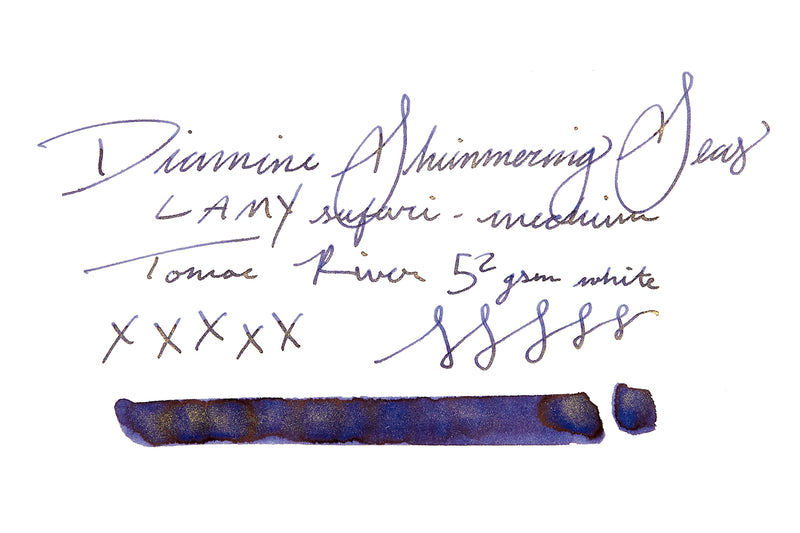 Diamine Shimmering Seas
LAMY safari - medium
Tomoe River 52 gsm white
XXXXX